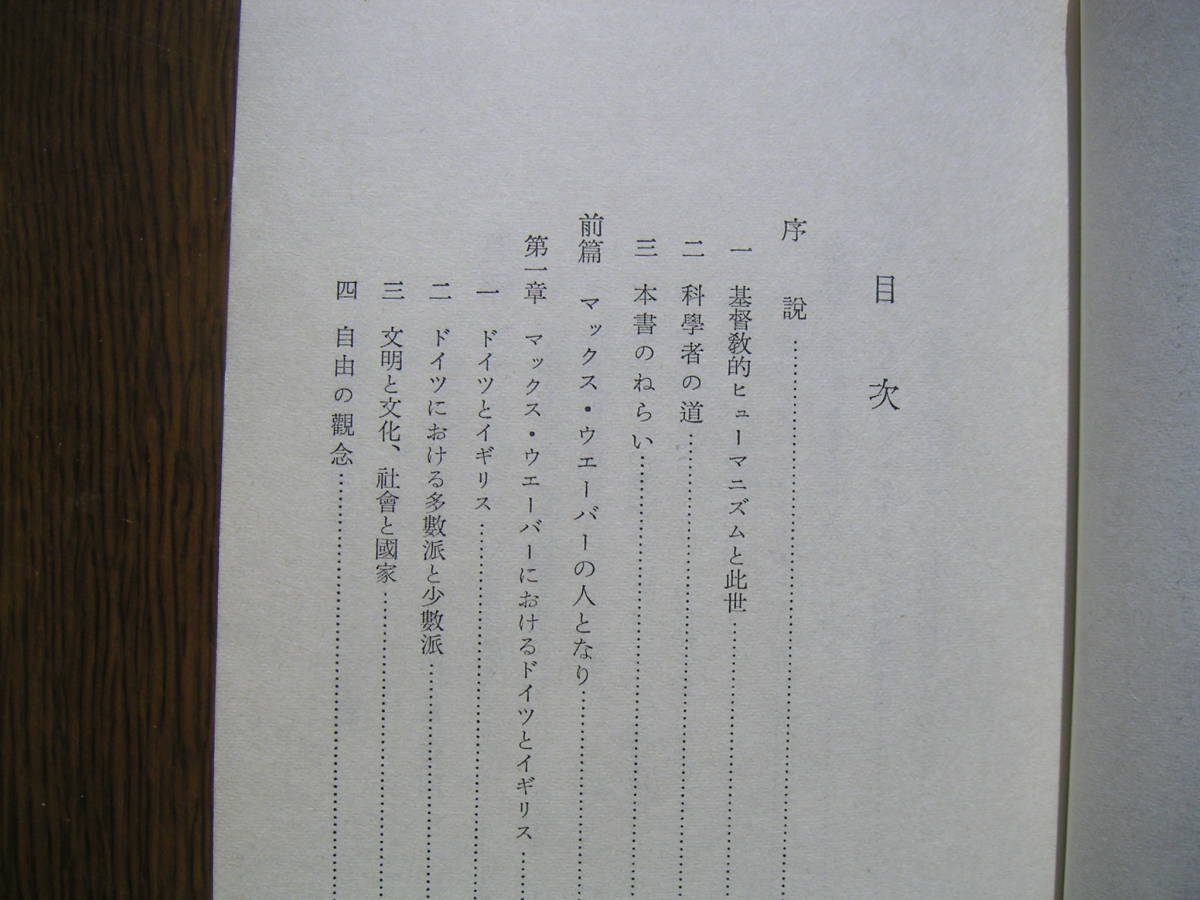 目次
序説……………………………
一 基督敎的ヒューマニズムと此世……………………………
二 科學者の道……………………………
三 本書のねらい……………………………
前篇 マックス・ウエーバーの人となり……………………………
第一章 マックス・ウエーバーにおけるドイツとイギリス……
一 ドイツとイギリス……………………………
二 ドイツにおける多數派と少數派……………………………
三 文明と文化、社會と國家……………………………
四 自由の觀念……………………………